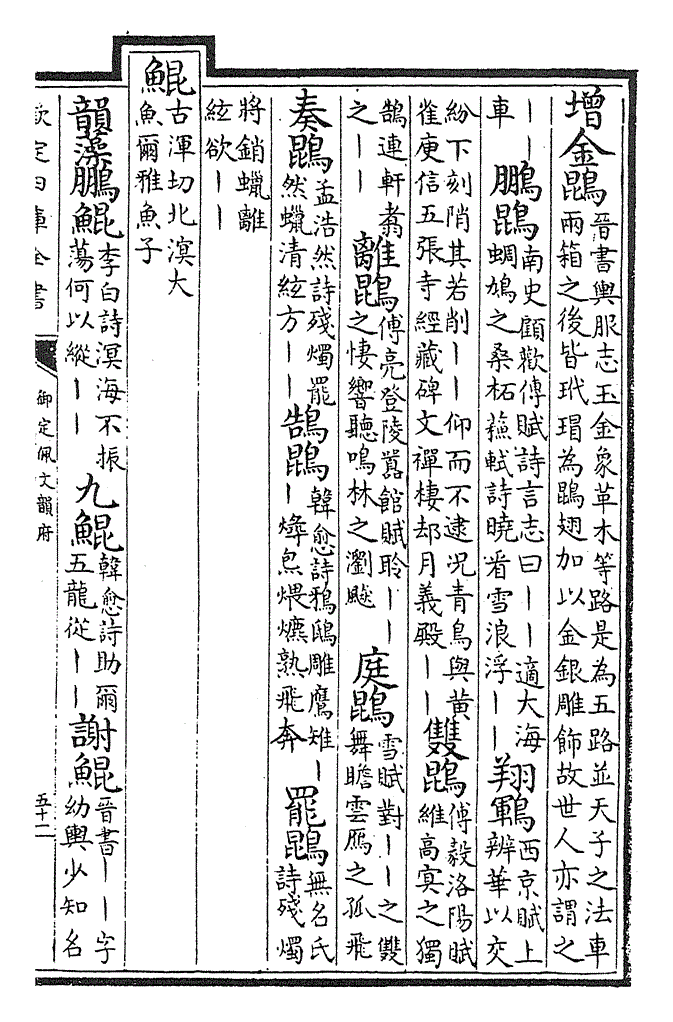 增金鵾晉書輿服志玉金象革木等路是為五路並天子之法車兩箱之後皆玳瑁為鵾翅加以金銀雕飾故世人亦謂之
｜｜車 鵬鵾南史顧歡傳賦詩言志曰｜｜適大海蜩鳩之桑柘蘇軾詩曉看雪浪浮｜｜ 翔鶤西京賦上辨華以交
紛下刻陗其若削｜｜仰而不逮況青鳥與黃雀庾信五張寺經藏碑文禪棲却月義殿｜｜ 雙鵾傅毅洛陽賦維高冥之獨
鵠連軒翥之｜｜ 離鵾傅亮登陵囂館賦聆｜｜之悽響聽鳴林之瀏飀 庭鵾雪賦對｜｜之雙舞瞻雲鴈之孤飛
奏鵾孟浩然詩殘燭罷然蠟清絃方｜｜ 鵠鵾韓愈詩鴉鴟雕鷹雉｜｜燖炰煨爊熟飛奔 罷鵾無名氏詩殘燭
將銷蠟離絃欲｜｜
鯤古渾切北溟大魚爾雅魚子
韻藻鵬鯤李白詩溟海不振蕩何以縱｜｜ 九鯤韓愈詩助爾五龍從｜｜ 謝鯤晉書｜｜字幼輿少知名
欽定四庫全書 御定佩文韻府